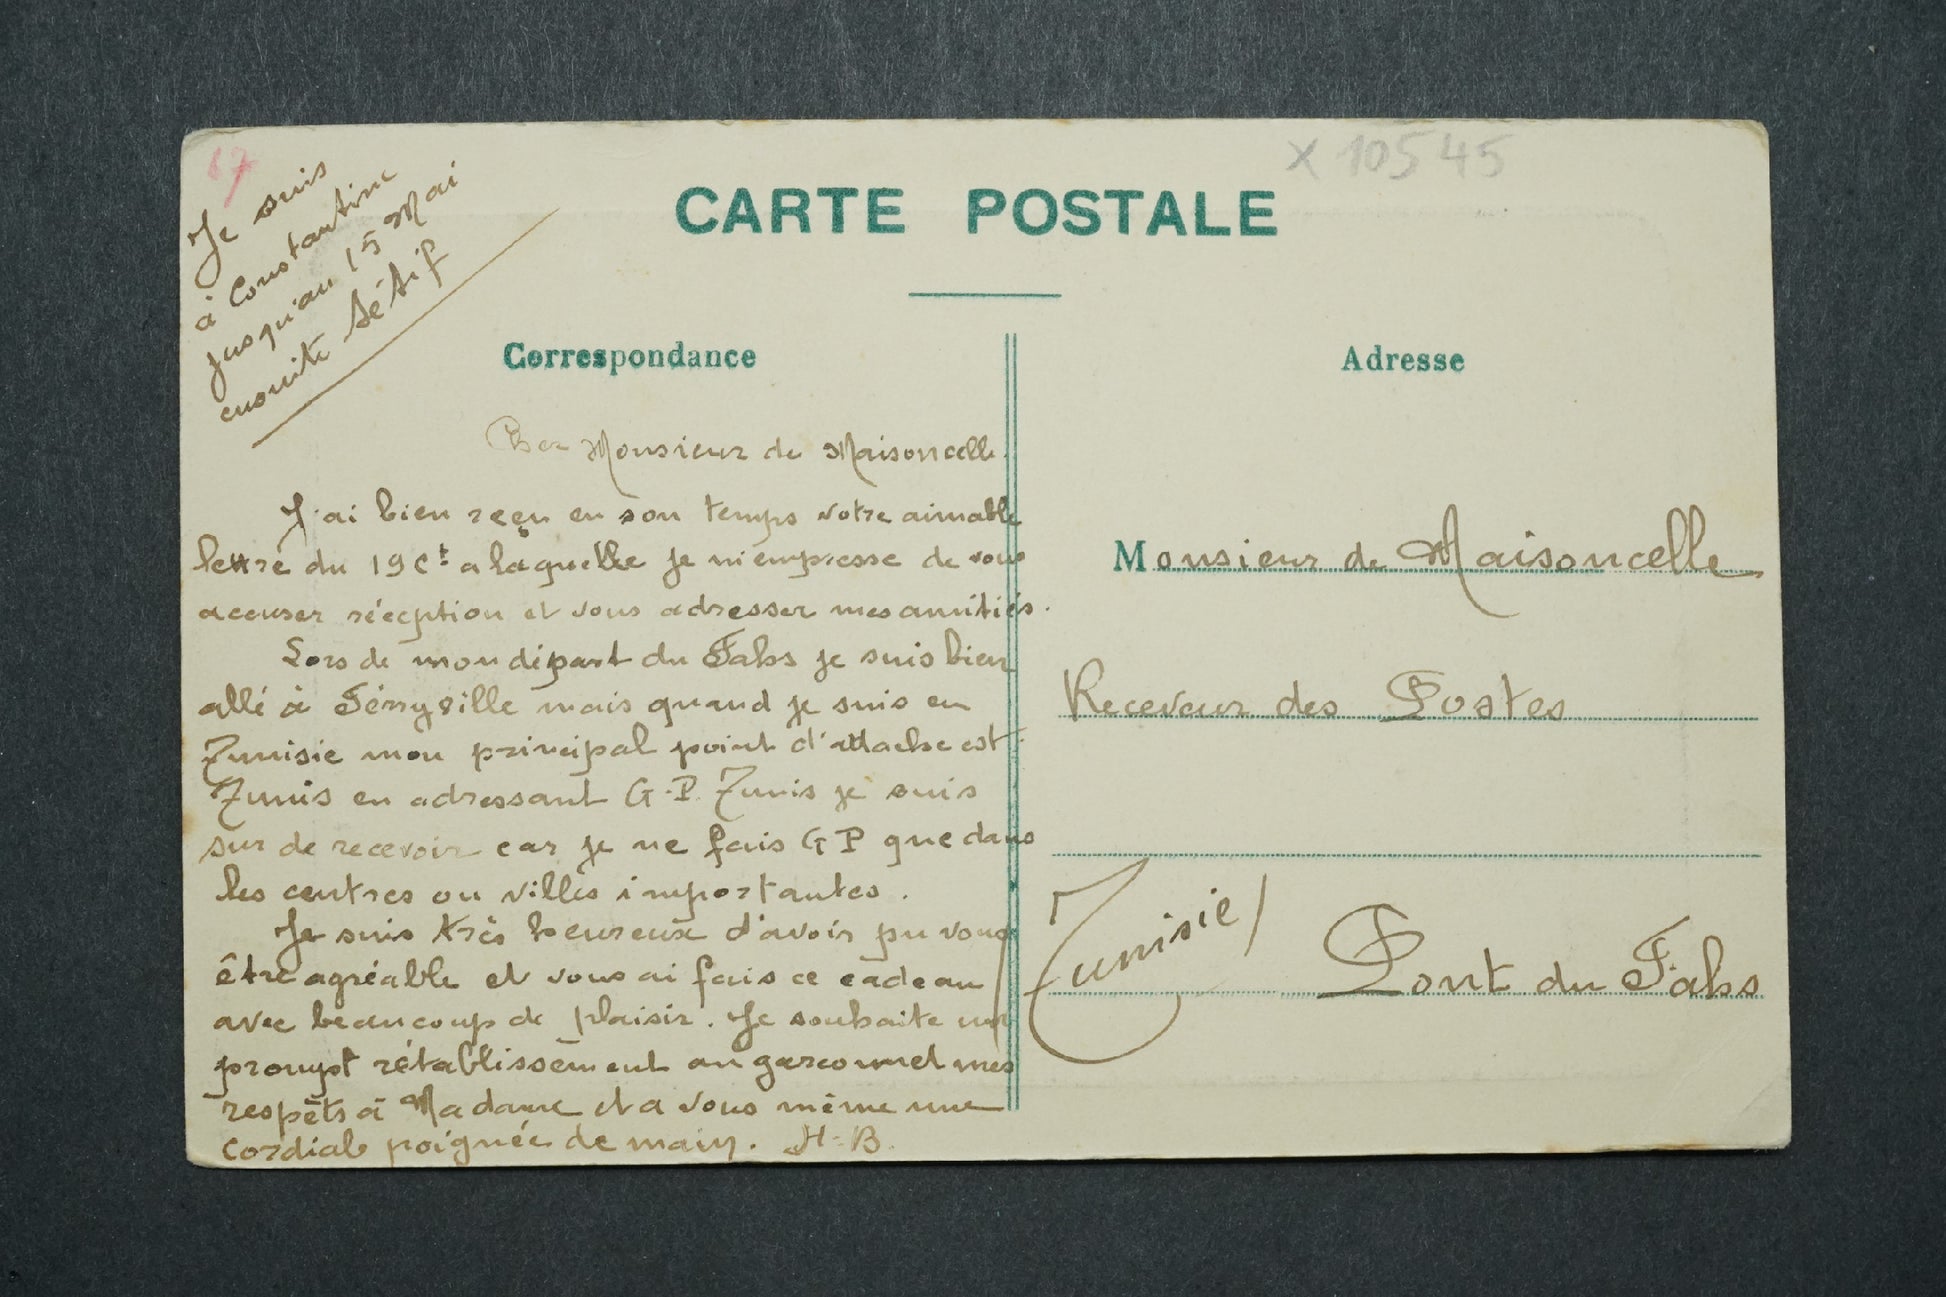 17
X 10545
Je suis
à Constantine
jusqu'au 15 Mai
ensuite Sétif
CARTE POSTALE
Correspondance
Cher Monsieur de Maisoncelle.
J'ai bien reçu en son temps votre aimable
lettre du 19 Ct a laquelle je m'empresse de vous
accuser réception et vous adresser mes amitiés.
Lors de mon départ du Fahs je suis bien
allé à Férryville mais quand je suis en
Tunisie mon principal point d'attache est
Tunis en adressant G.P. Tunis je suis
sur de recevoir car je ne fais G P que dans
les centres ou villes importantes.
Je suis très heureux d'avoir pu vous
être agréable et vous ai fais ce cadeau
avec beaucoup de plaisir. Je souhaite un
prompt rétablissement au garconnet mes
respéts à Madame et a vous même une
cordiale poignée de main. H-B.
Adresse
Monsieur de Maisoncelle
Receveur des Postes
Pont du Fahs
Tunisie/